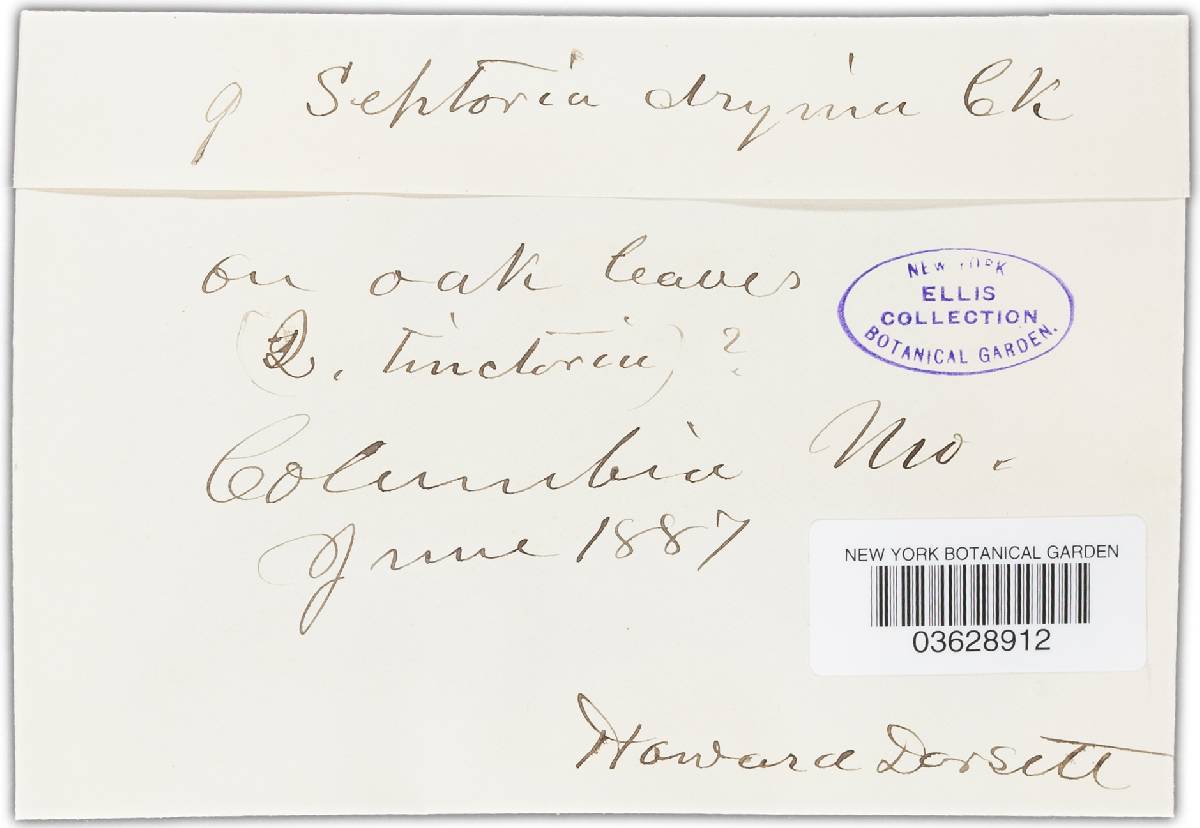 9 Septoria dryina Ck
on oak leaves
(Q. tinctoria) ?
Columbia Mo.
June 1887
Howard Dorsett
NEW YORK
ELLIS
COLLECTION
BOTANICAL GARDEN.
NEW YORK BOTANICAL GARDEN
03628912